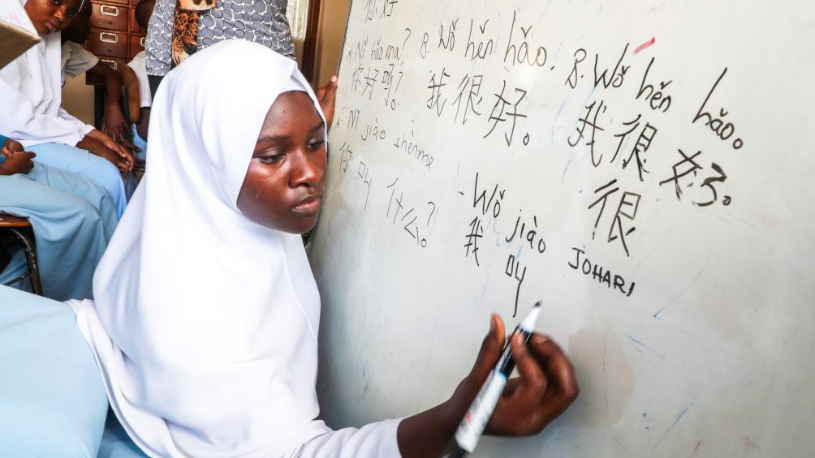 你好
Nǐ hǎo ma? B. Wǒ hěn hǎo.
你好吗? 我很好。
Nǐ jiào shénme
你叫什么?
B. Wǒ hěn hǎo。
我很好。
很
Wǒ jiào JOHARI
我叫